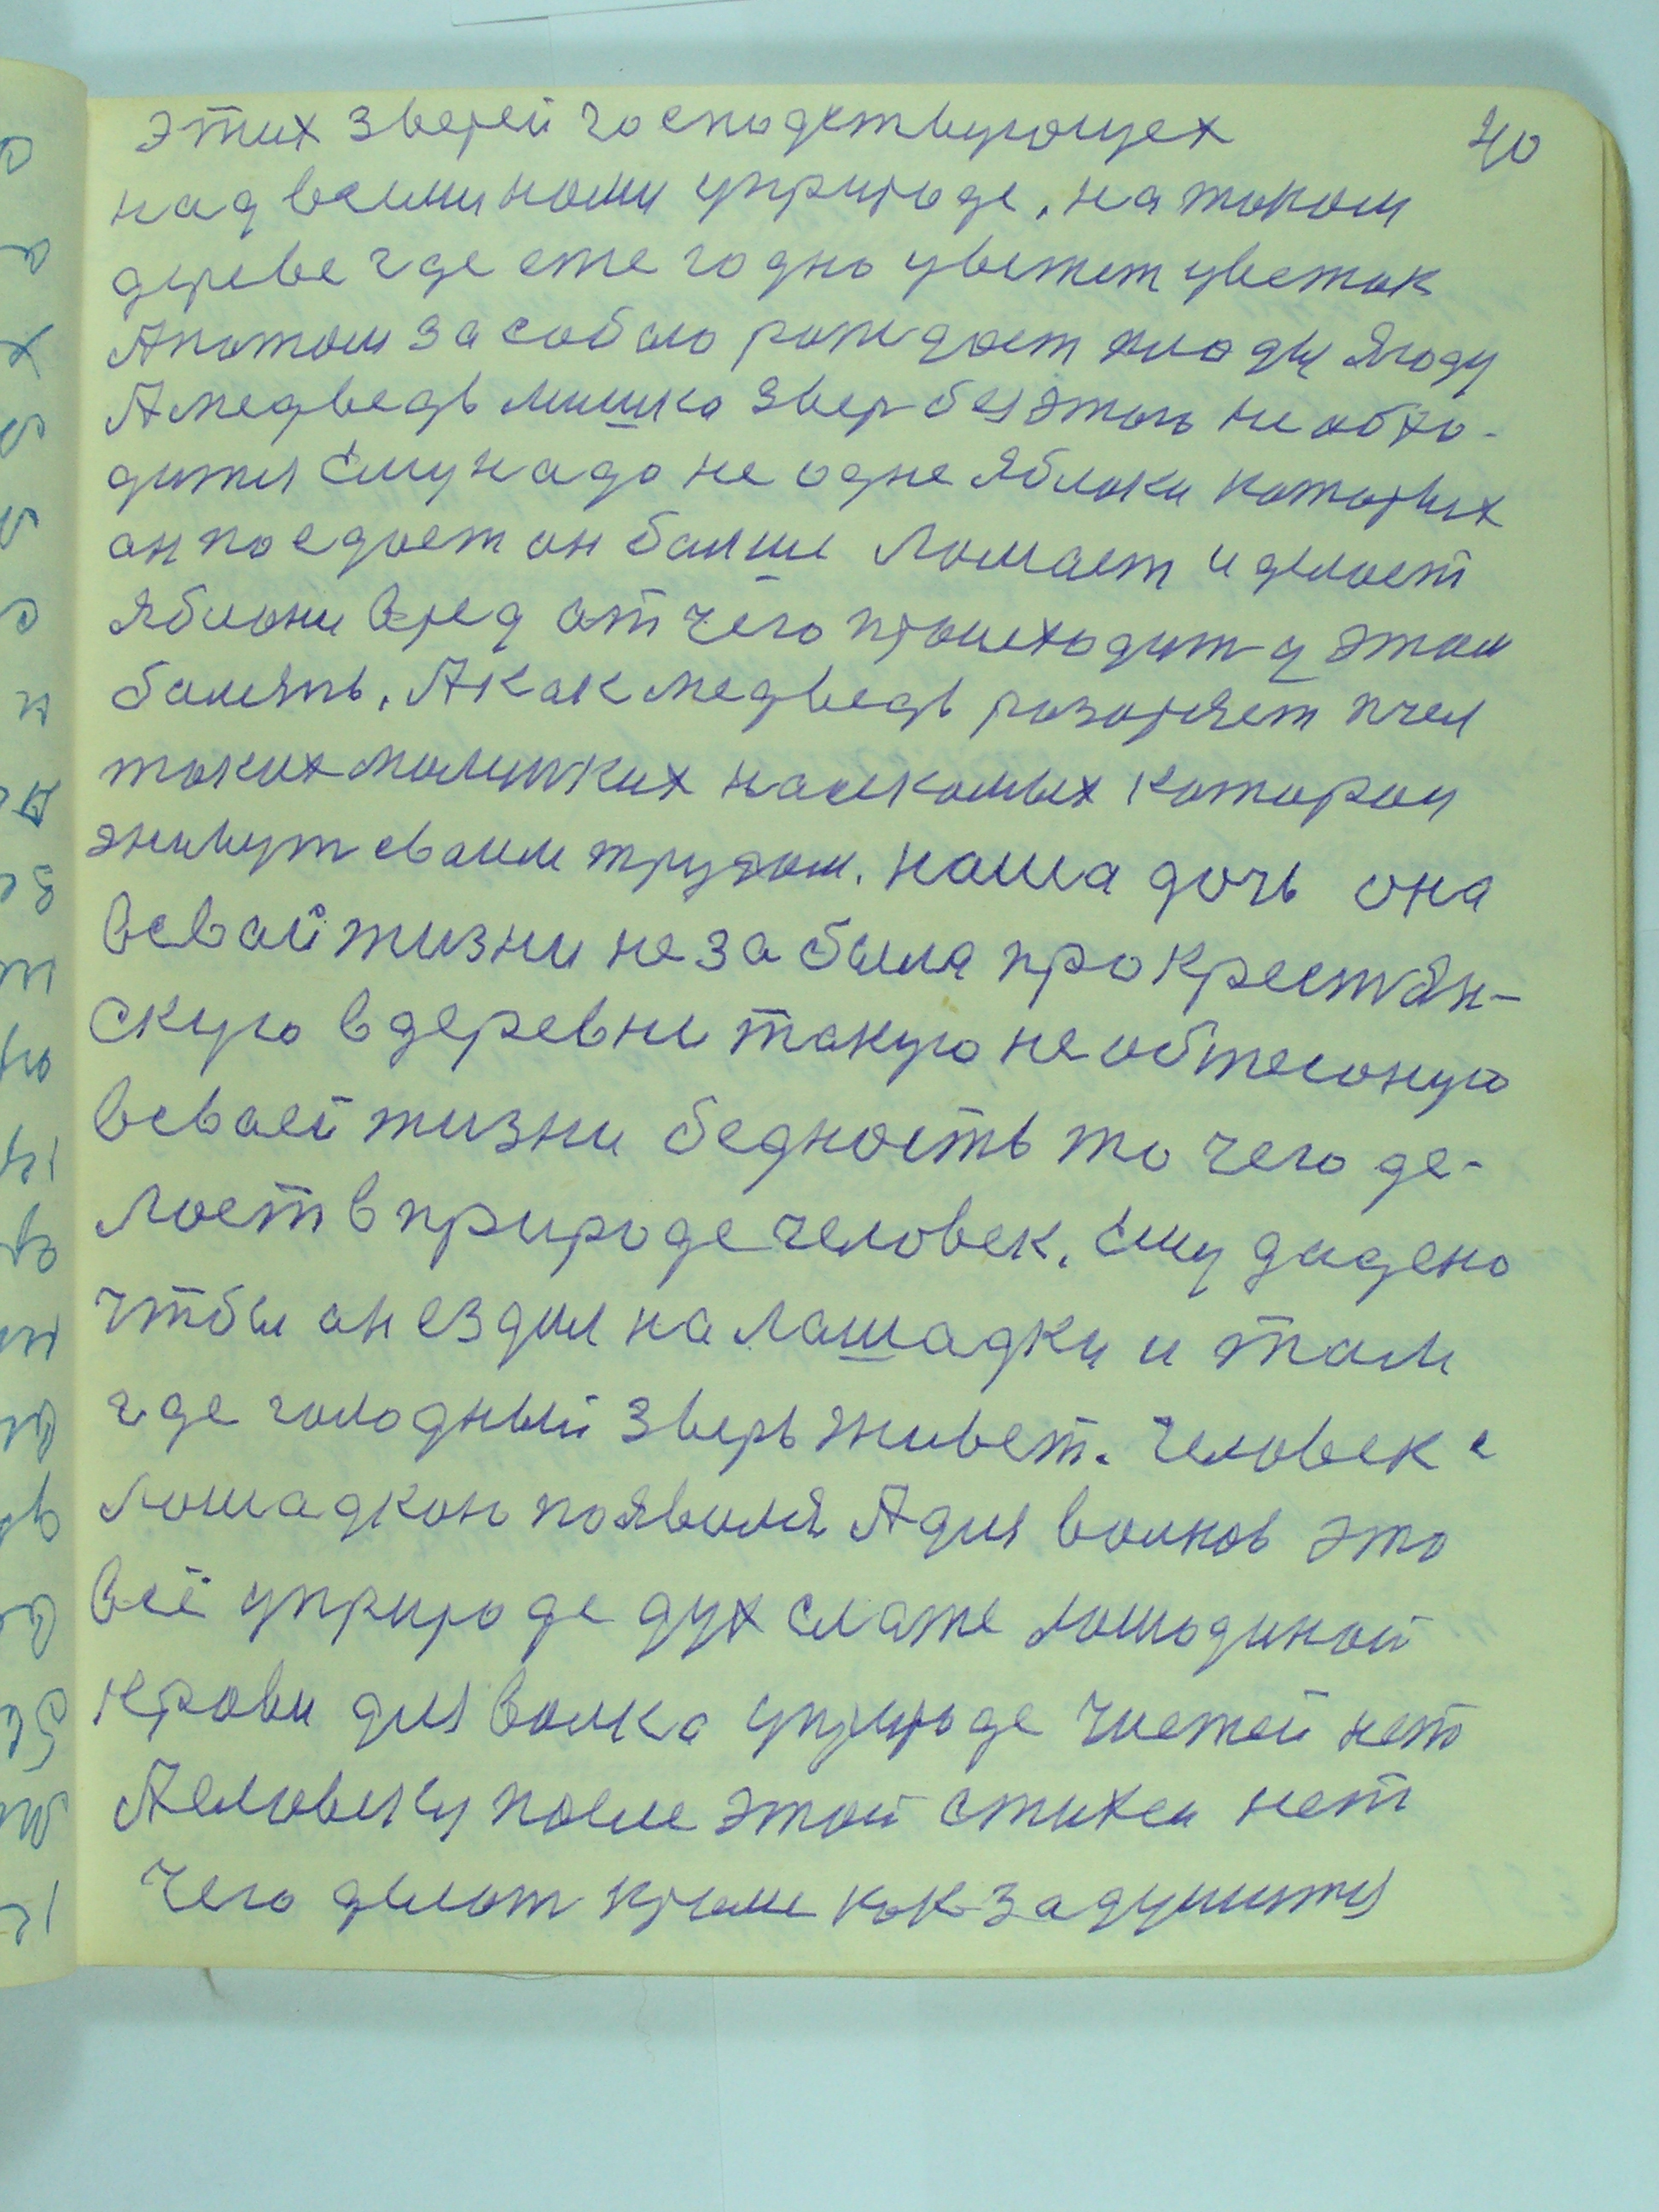 40
этих зверей господствующех
над всеми нами уприроде, на таком
дереве где ежегодно цветет цветок
А потом за собою рождает плоды ягоду
А медведь мишка звер без этого не обхо-
дится ему надо не одне яблоки которых
он поедает он балше ломает и делает
яблони вред от чего происходит у этом
болезнь. А как медведь разоряет пчел
таких малинких насикомых которои
живут своим трудом. наша дочь она
всваи жизни не забыла про крестьян-
скую в деревне такую необтесоную
всваеи жизни бедность то чего де-
лает в природе человек. ему дадено
чтобы он ездил на лашадки и там
где голодный зверь живет. человек с
лошадкою появился А для волков это
всё уприроде дух слаже лошадиной
крови для волка уприроде чистей нет
Человеку после этой стихеи нет
чего делат кроме как задушится